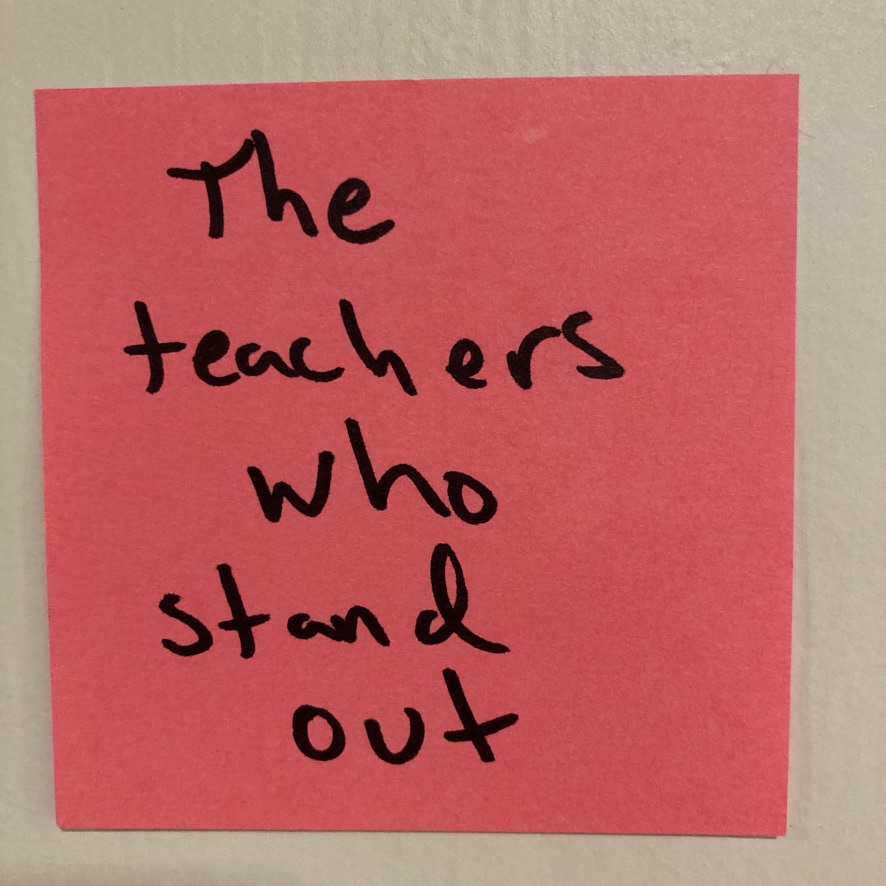 The
teachers
who
stand
out